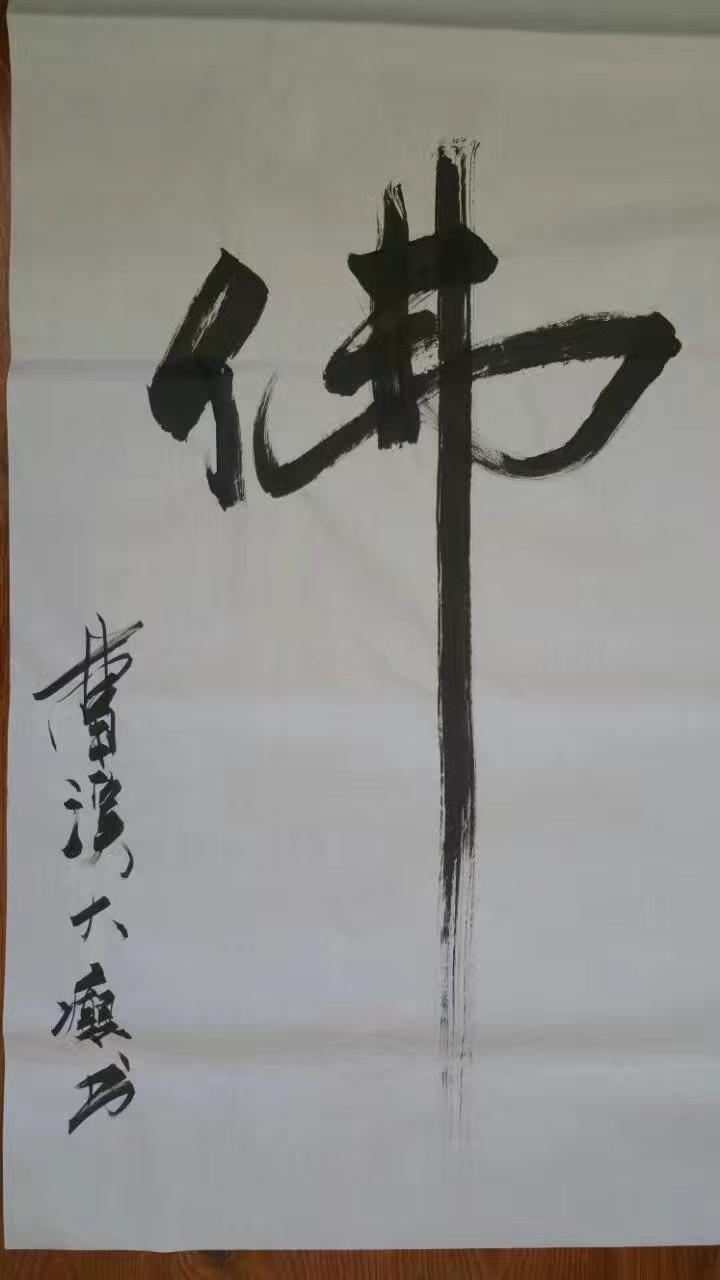 佛
曹溪大癫书